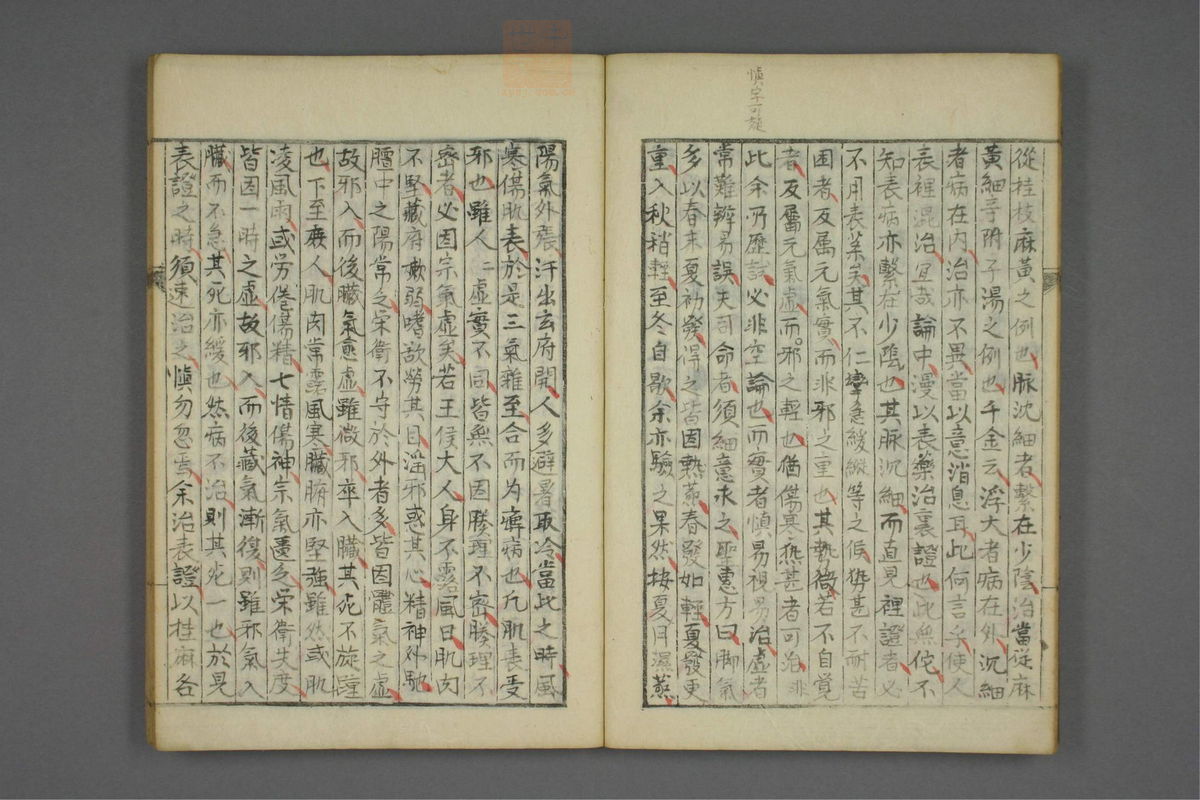 慎字可疑
從桂枝麻黃之例也脉沈細者繫在少陰治當從麻
黃細辛附子湯之例也千金云浮大者病在外沉細
者病在内治亦不異當以意消息耳此何言乎使人
表裡混治宜哉論中漫以表藥治裏證也此無佗不
知表病亦繫在少陰也其脉沉細而直見裡證者必
不用表藥矣其不仁攣急緩縱等之候势甚不耐苦
困者反属元氣實而非邪之重也其勢微若不自覺
者反屬元氣虛而邪之輕也猶傷寒熱甚者可治非
此余所歷試必非空論也而實者慎易視易治虛者
常難辨易誤夫司命者須細意求之聖惠方曰脚氣
多以春末夏初發得之皆因熱蒸春發如輕夏發更
重入秋稍輕至冬自歇余亦驗之果然按夏月濕蒸
陽氣外張汗出玄府開人多避暑取冷當此之時風
寒傷肌表於是三氣雜至合而为痺病也凡肌表受
邪也雖人人虛實不同皆無不因腠理不密腠理不
密者必因宗氣虛矣若王侯大人身不露風日肌肉
不堅藏府嫩弱嗜欲勞其目淫邪惑其心精神外馳
膻中之陽常之榮衛不守於外者多皆因體氣之虛
故邪入而後臟氣愈虛雖微邪卒入臟其死不旋踵
也下至庶人肌肉常露風寒臟腑亦堅強雖然或肌
凌風雨或労倦傷精七情傷神宗氣匱乏榮衛失度
皆因一時之虛故邪入而後藏氣漸復則雖邪氣入
臟而不急其死亦緩也然病不治則其死一也於見
表證之時須速治之慎勿忽焉余治表證以桂麻各